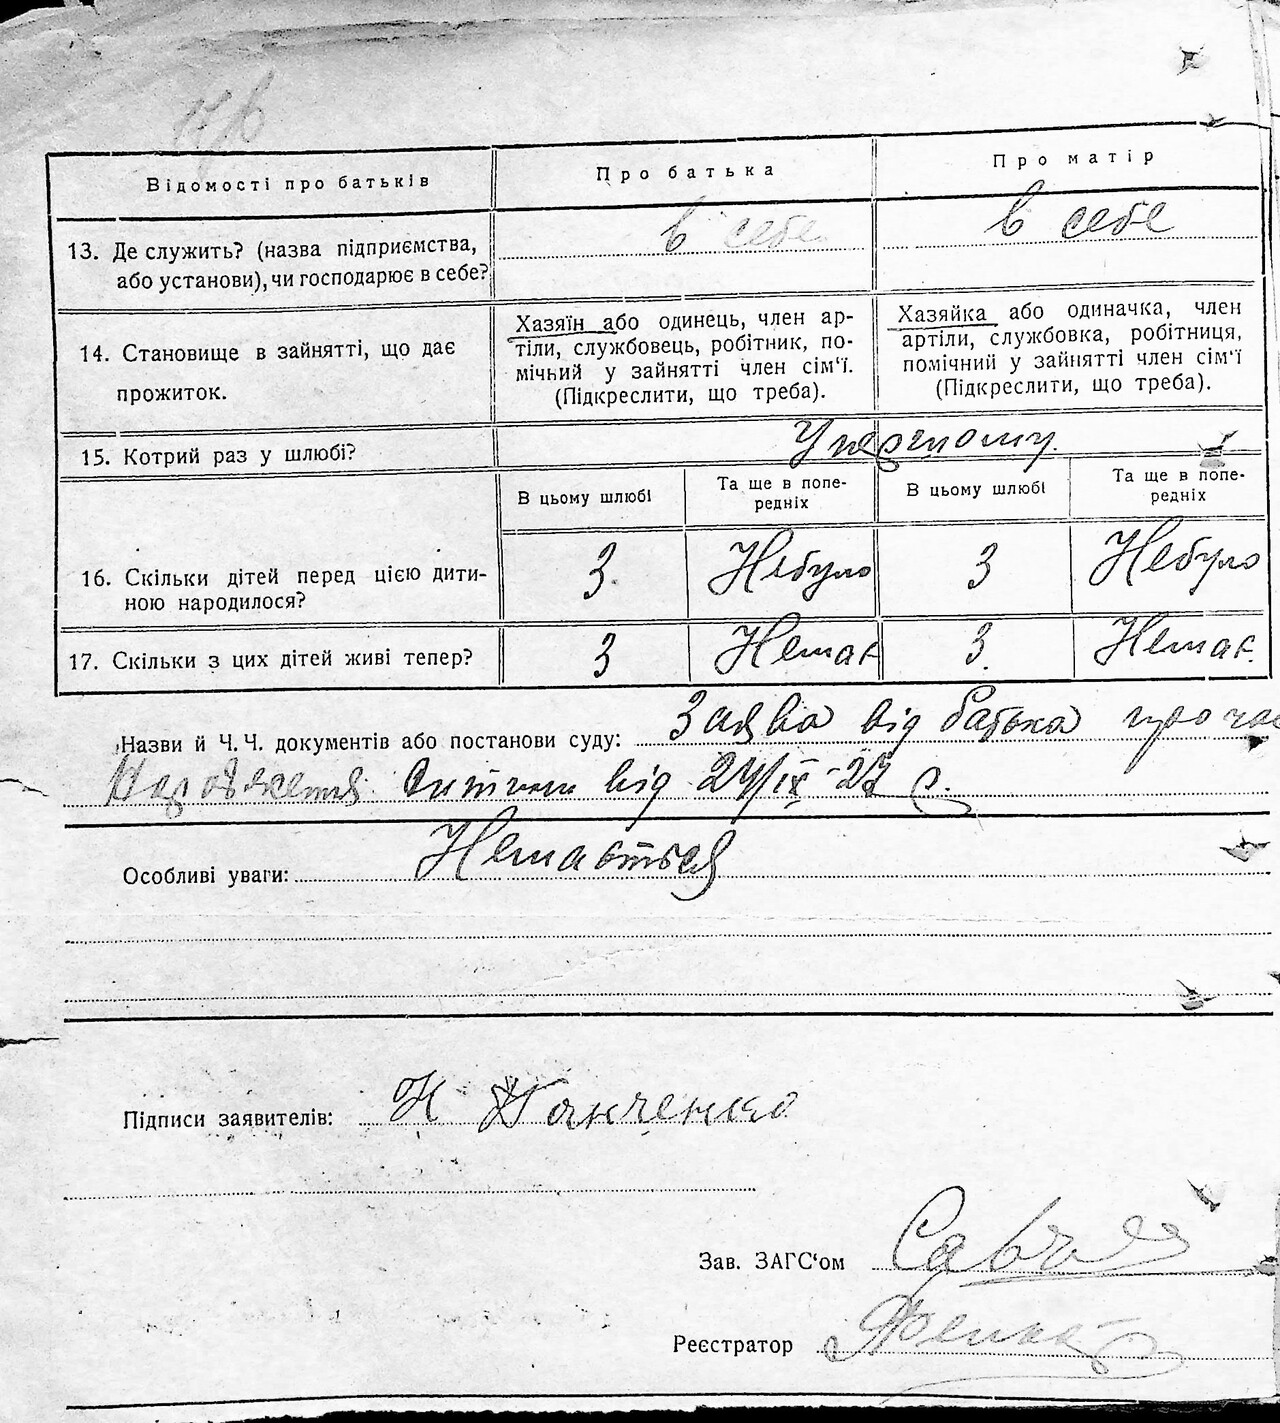 Відомості про батьків Про батька Про матір
13. Де служить? (назва підприємства, або установи), чи господарює в себе? в себе в себе
14. Становище в зайнятті, що дає прожиток.
Хазяїн або одинець, член ар-
тіли, службовець, робітник, по-
мічний у зайнятті член сім'ї.
(Підкреслити, що треба).
Хазяйка або одиначка, член
артіли, службовка, робітниця,
помічний у зайнятті член сім'ї
(Підкреслити, що треба).
15. Котрий раз у шлюбі? У первому.
В цьому шлюбі Та ще в попе-
редніх В цьому шлюбі Та ще в попе-
редніх
16. Скільки дітей перед цією дити-
ною народилося? 3 Небуло 3 Небуло
17. Скільки з цих дітей живі тепер? 3 Немає 3. Немає.
Назви й Ч. Ч. документів або постанови суду: Заява від батька про час
Народження дитини від 24/IX-27 р.
Особливі уваги: Немається
Підписи заявителів:
Зав. ЗАГС'ом
Реєстратор